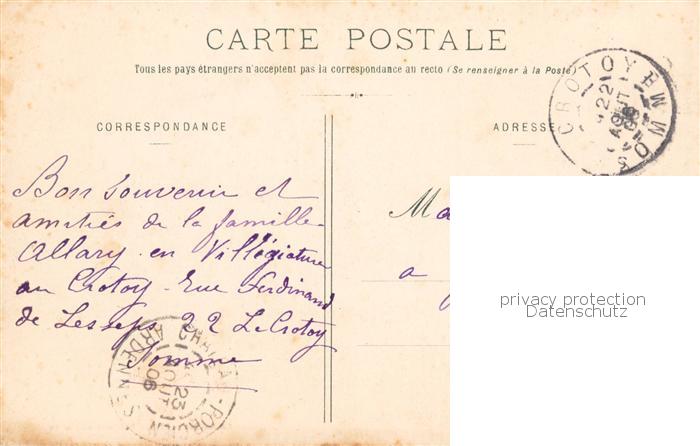 CARTE POSTALE
Tous les pays étrangers n'acceptent pas la correspondance au recto (Se renseigner à la Poste)
CORRESPONDANCE
ADRESSE
CROTOY
22
AOUT
SOMME
Bon souvenir et
amitiés de la famille
Allary en Villégiature
au Crotoy - Rue Ferdinand
de Lesseps 22 Le Crotoy
Somme
Ma
a
privacy protection
Datenschutz
PORCIEN
ARDENNES
23
AOUT
06